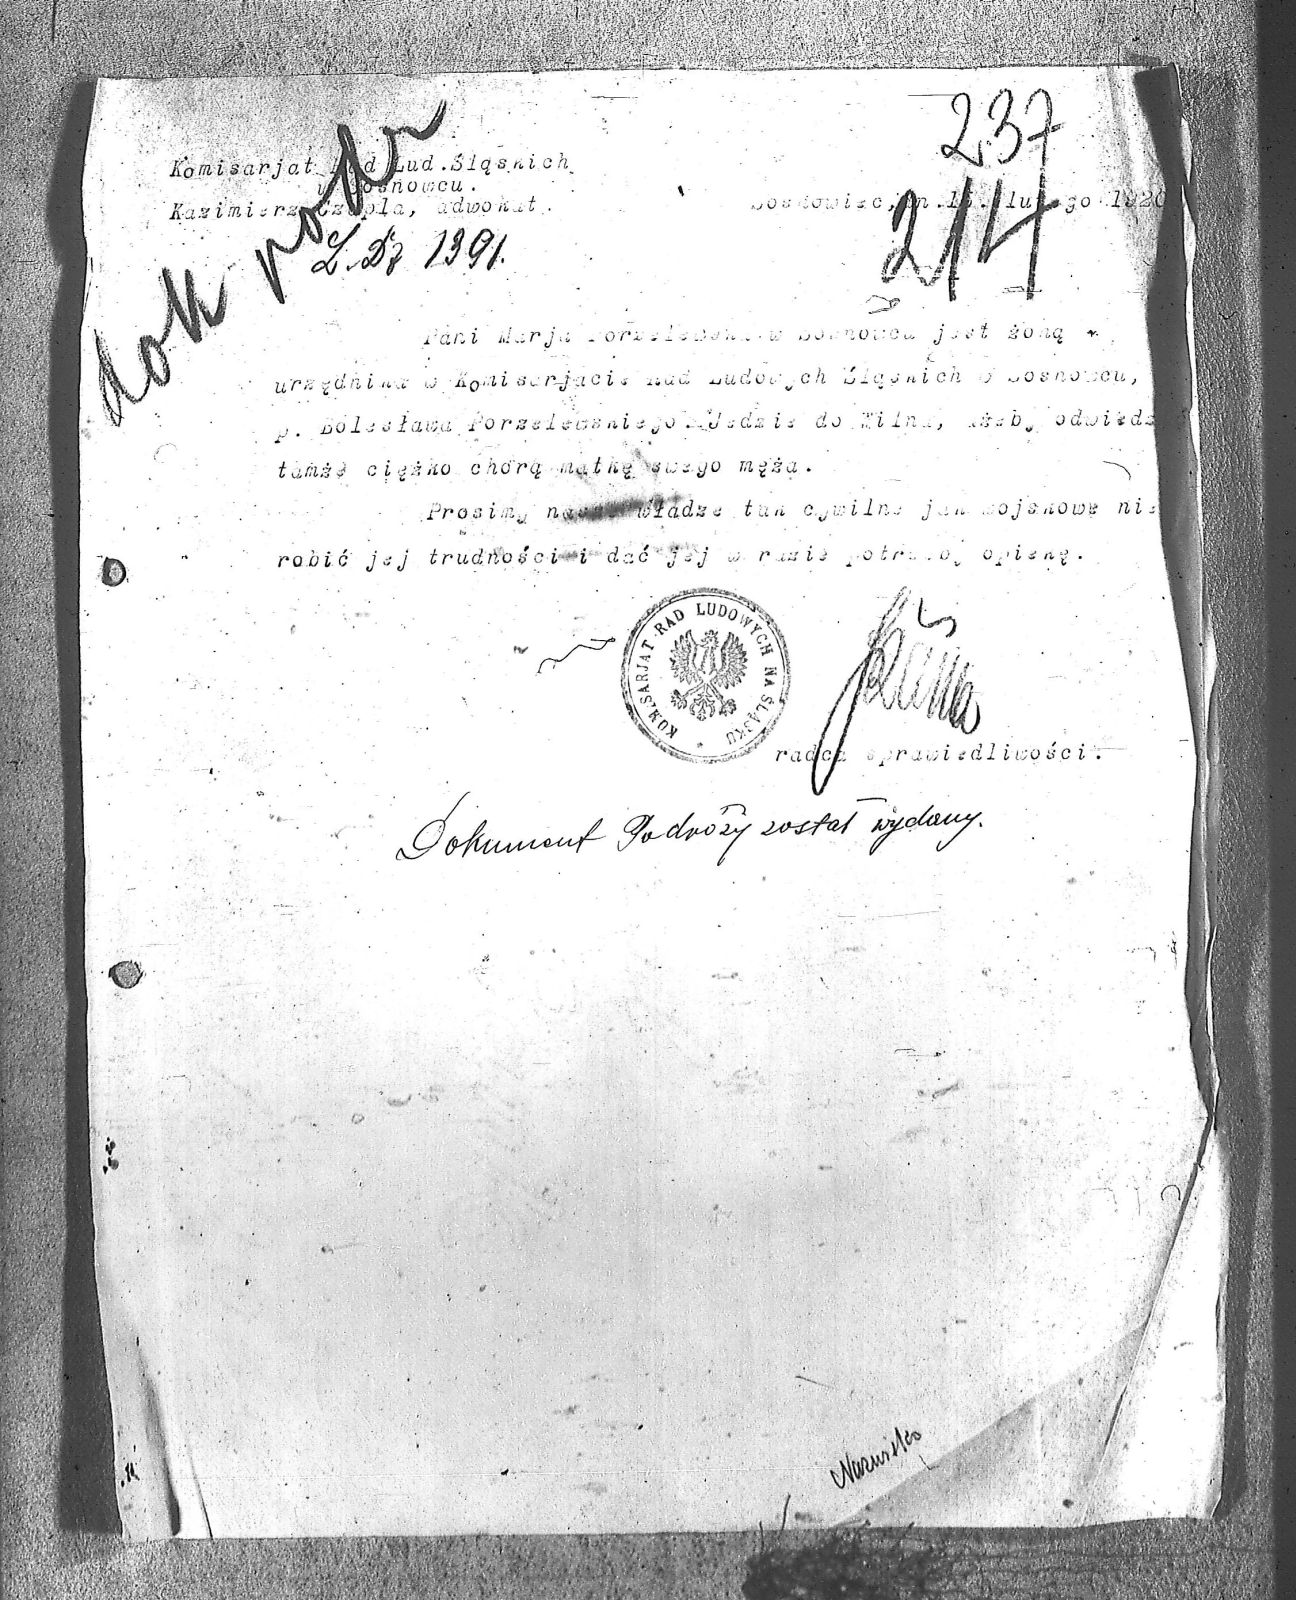 237
dok podr
Komisarjat Rad Lud.Śląskich
w Sosnowcu.
Kazimierz Czapla, adwokat.
Sosnowiec, dn. lutego 1920
214
L. Dz 1391.
Pani Marja Porzelewska w Sosnowcu jest żoną
urzędnika w Komisarjacie Rad Ludowych Śląskich w Sosnowcu,
p. Bolesława Porzelewskiego. Jedzie do Wilna, ażeby odwiedz
tamże ciężko chorą matkę swego męża.
Prosimy nasze władze tak cywilne jak wojskowe nie
robić jej trudności i dać jej w razie potrzeby opiekę.
KOMISARJAT RAD LUDOWYCH NA ŚLĄSKU
radca sprawiedliwości.
Dokument Podróży został wydany.